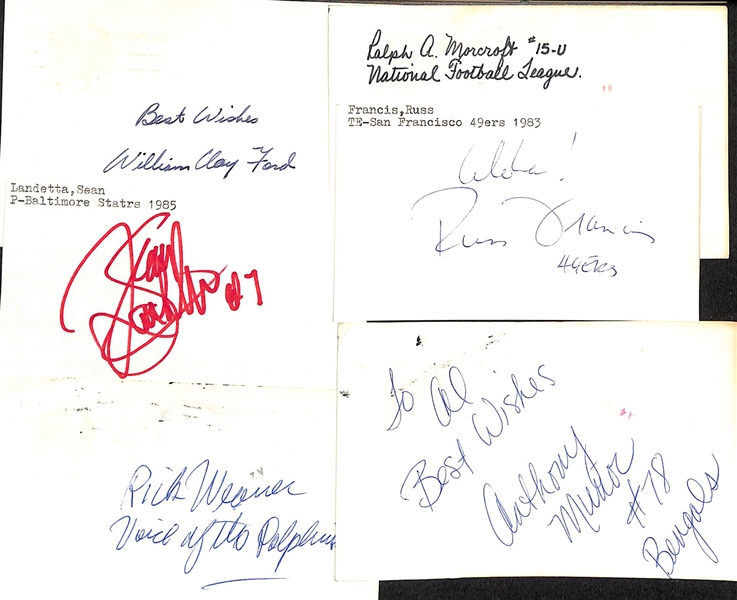 Best Wishes
William Clay Ford
Landetta,Sean
P-Baltimore Statrs 1985
Sean
Landeta #7
Rick Weaver
Voice of the Dolphins
Ralph A. Morcroft #15-U
National Football League.
Francis,Russ
TE-San Francisco 49ers 1983
Aloha!
Russ Francis
49ERS
To Al
Best Wishes
Anthony
Munoz
#78
Bengals